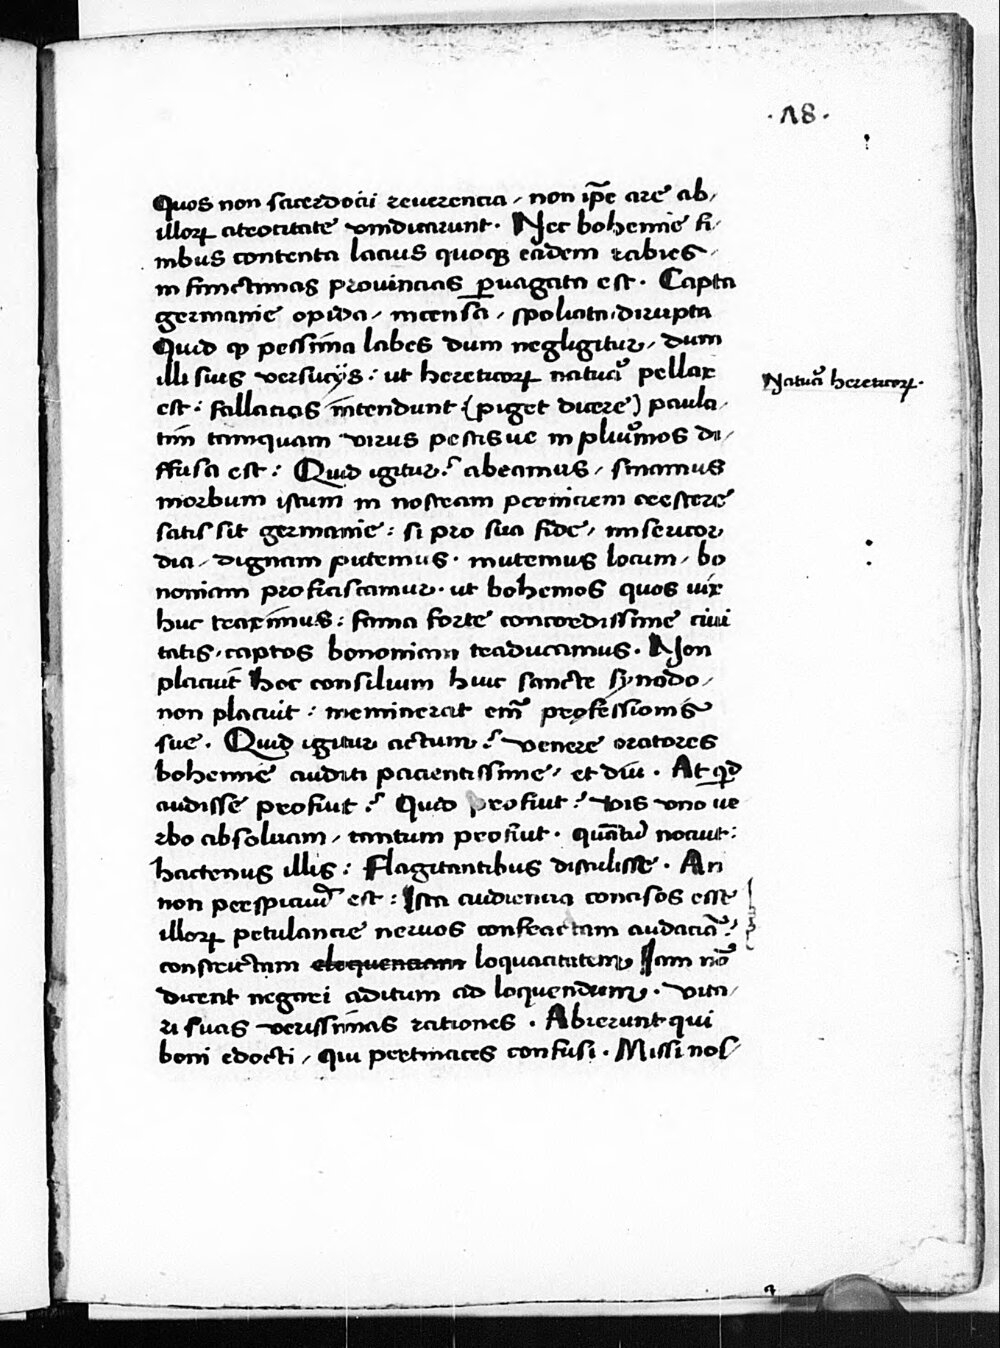 ·18·
Quos non sacerdocii reuerencia, non ip̄e are ab,
illoꝝ atrocitate vindicarunt. Nec bohemie fi,
nibus contenta lacius quoqꝫ eadem rabies,
in finictimas prouincias ꝑuagata est. Capta
germanie opida, incensa, spoliata, dirupta
Quid ꝙ pessima labes dum negligitur, dum
illi suis versucijs: ut hereticoꝝ natura pellax
est: fallacias intendunt (piget dicere) paula,
tim tamquam virus pestis ue in plurimos di,
ffusa est: Quid igitur? abeamus, sinamus
morbum istum in nostram perniciem crescere
satis sit germanie: si pro sua fide, misericor
dia, dignam putemus. mutemus locum, bo
noniam proficiscamur. ut bohemos quos uix
huc traximus: fama forte concordissime ciui
tatis, captos bononiam traducamus. Non
placuit hoc consilium huic sancte synodo,
non placuit: meminerat em̄ professionis
sue. Quid igitur actum? venere oratores
bohemie auditi pacientissime, et diu. At qͥd
audisse profuit? Quid profuit? vis vno ue
rbo absoluam, tantum profuit. quātū nocuit:
hactenus illis: Flagitantibus distulisse. An
non perspicuū est: Ista audiencia concisos esse
illoꝝ petulancie neruos confractam audaciā?
constrictam eloquenciam loquacitatem, Iam nō
dicent negari aditum ad loquendum. vita,
ri suas verissimas rationes. Abierunt qui
boni edocti, qui pertinaces confusi. Missi nos
Natura hereticoꝝ.